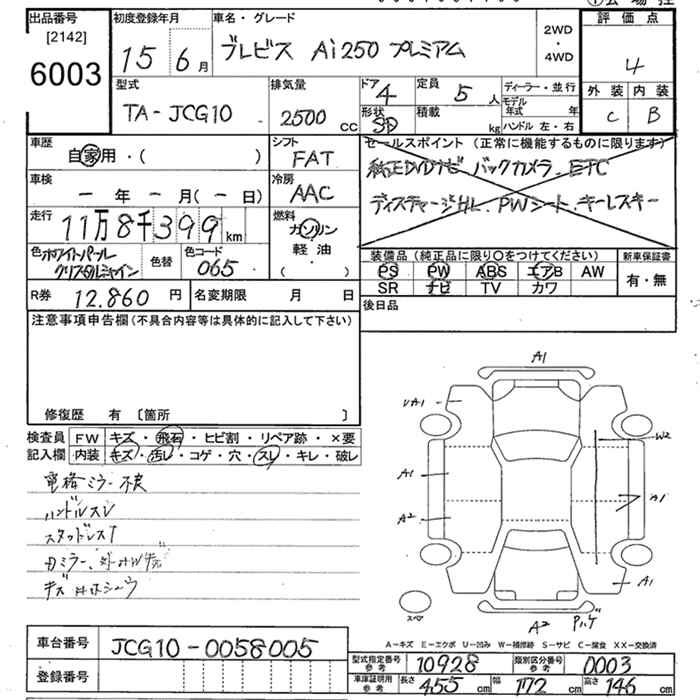 出品番号
[2142]
6003
初度登録年月
15 6月
車名・グレード
ブレビス Ai250 プレミアム
2WD
・
4WD
評価点
4
外装 内装
C B
型式
TA-JCG10
排気量
2500 CC
ドア 4
形状 SD
定員 5 人
積載 kg
ディーラー・並行
モデル年式 年
ハンドル 左・右
車歴
自家用・( )
シフト
FAT
車検
ー年ー月(ー日)
冷房
AAC
走行
11万8千399km
燃料
ガソリン
軽油
( )
色 ホワイトパール クリスタルシャイン
色替
色コード
065
セールスポイント (正常に機能するものに限ります)
純正DVDナビ バックカメラ. ETC
ディスチャージHL. PWシート. キーレスキー
装備品 (純正品に限り○をつけてください)
PS PW ABS エアB AW
SR ナビ TV カワ
新車保証書
有・無
R券 12.860 円
名変期限 月 日
後日品
注意事項申告欄 (不具合内容等は具体的に記入して下さい)
修復歴 有 〔箇所 〕
検査員記入欄
FW キズ・飛石・ヒビ割・リペア跡・×要
内装 キズ・汚レ・コゲ・穴・スレ・キレ・破レ
電格ミラー不良
ハンドルスレ
スタッドレス
キズ
A1
UA1
W2
A1
A1
A2
A1
A2
スペア
A=キズ E=エクボ U=凹み W=補修跡 S=サビ C=腐食 XX=交換済
車台番号
JCG10-0058005
登録番号
型式指定番号 参考 10928
類別区分番号 参考 0003
車庫証明用 参考 長さ 455 cm 幅 172 cm 高さ 146 cm